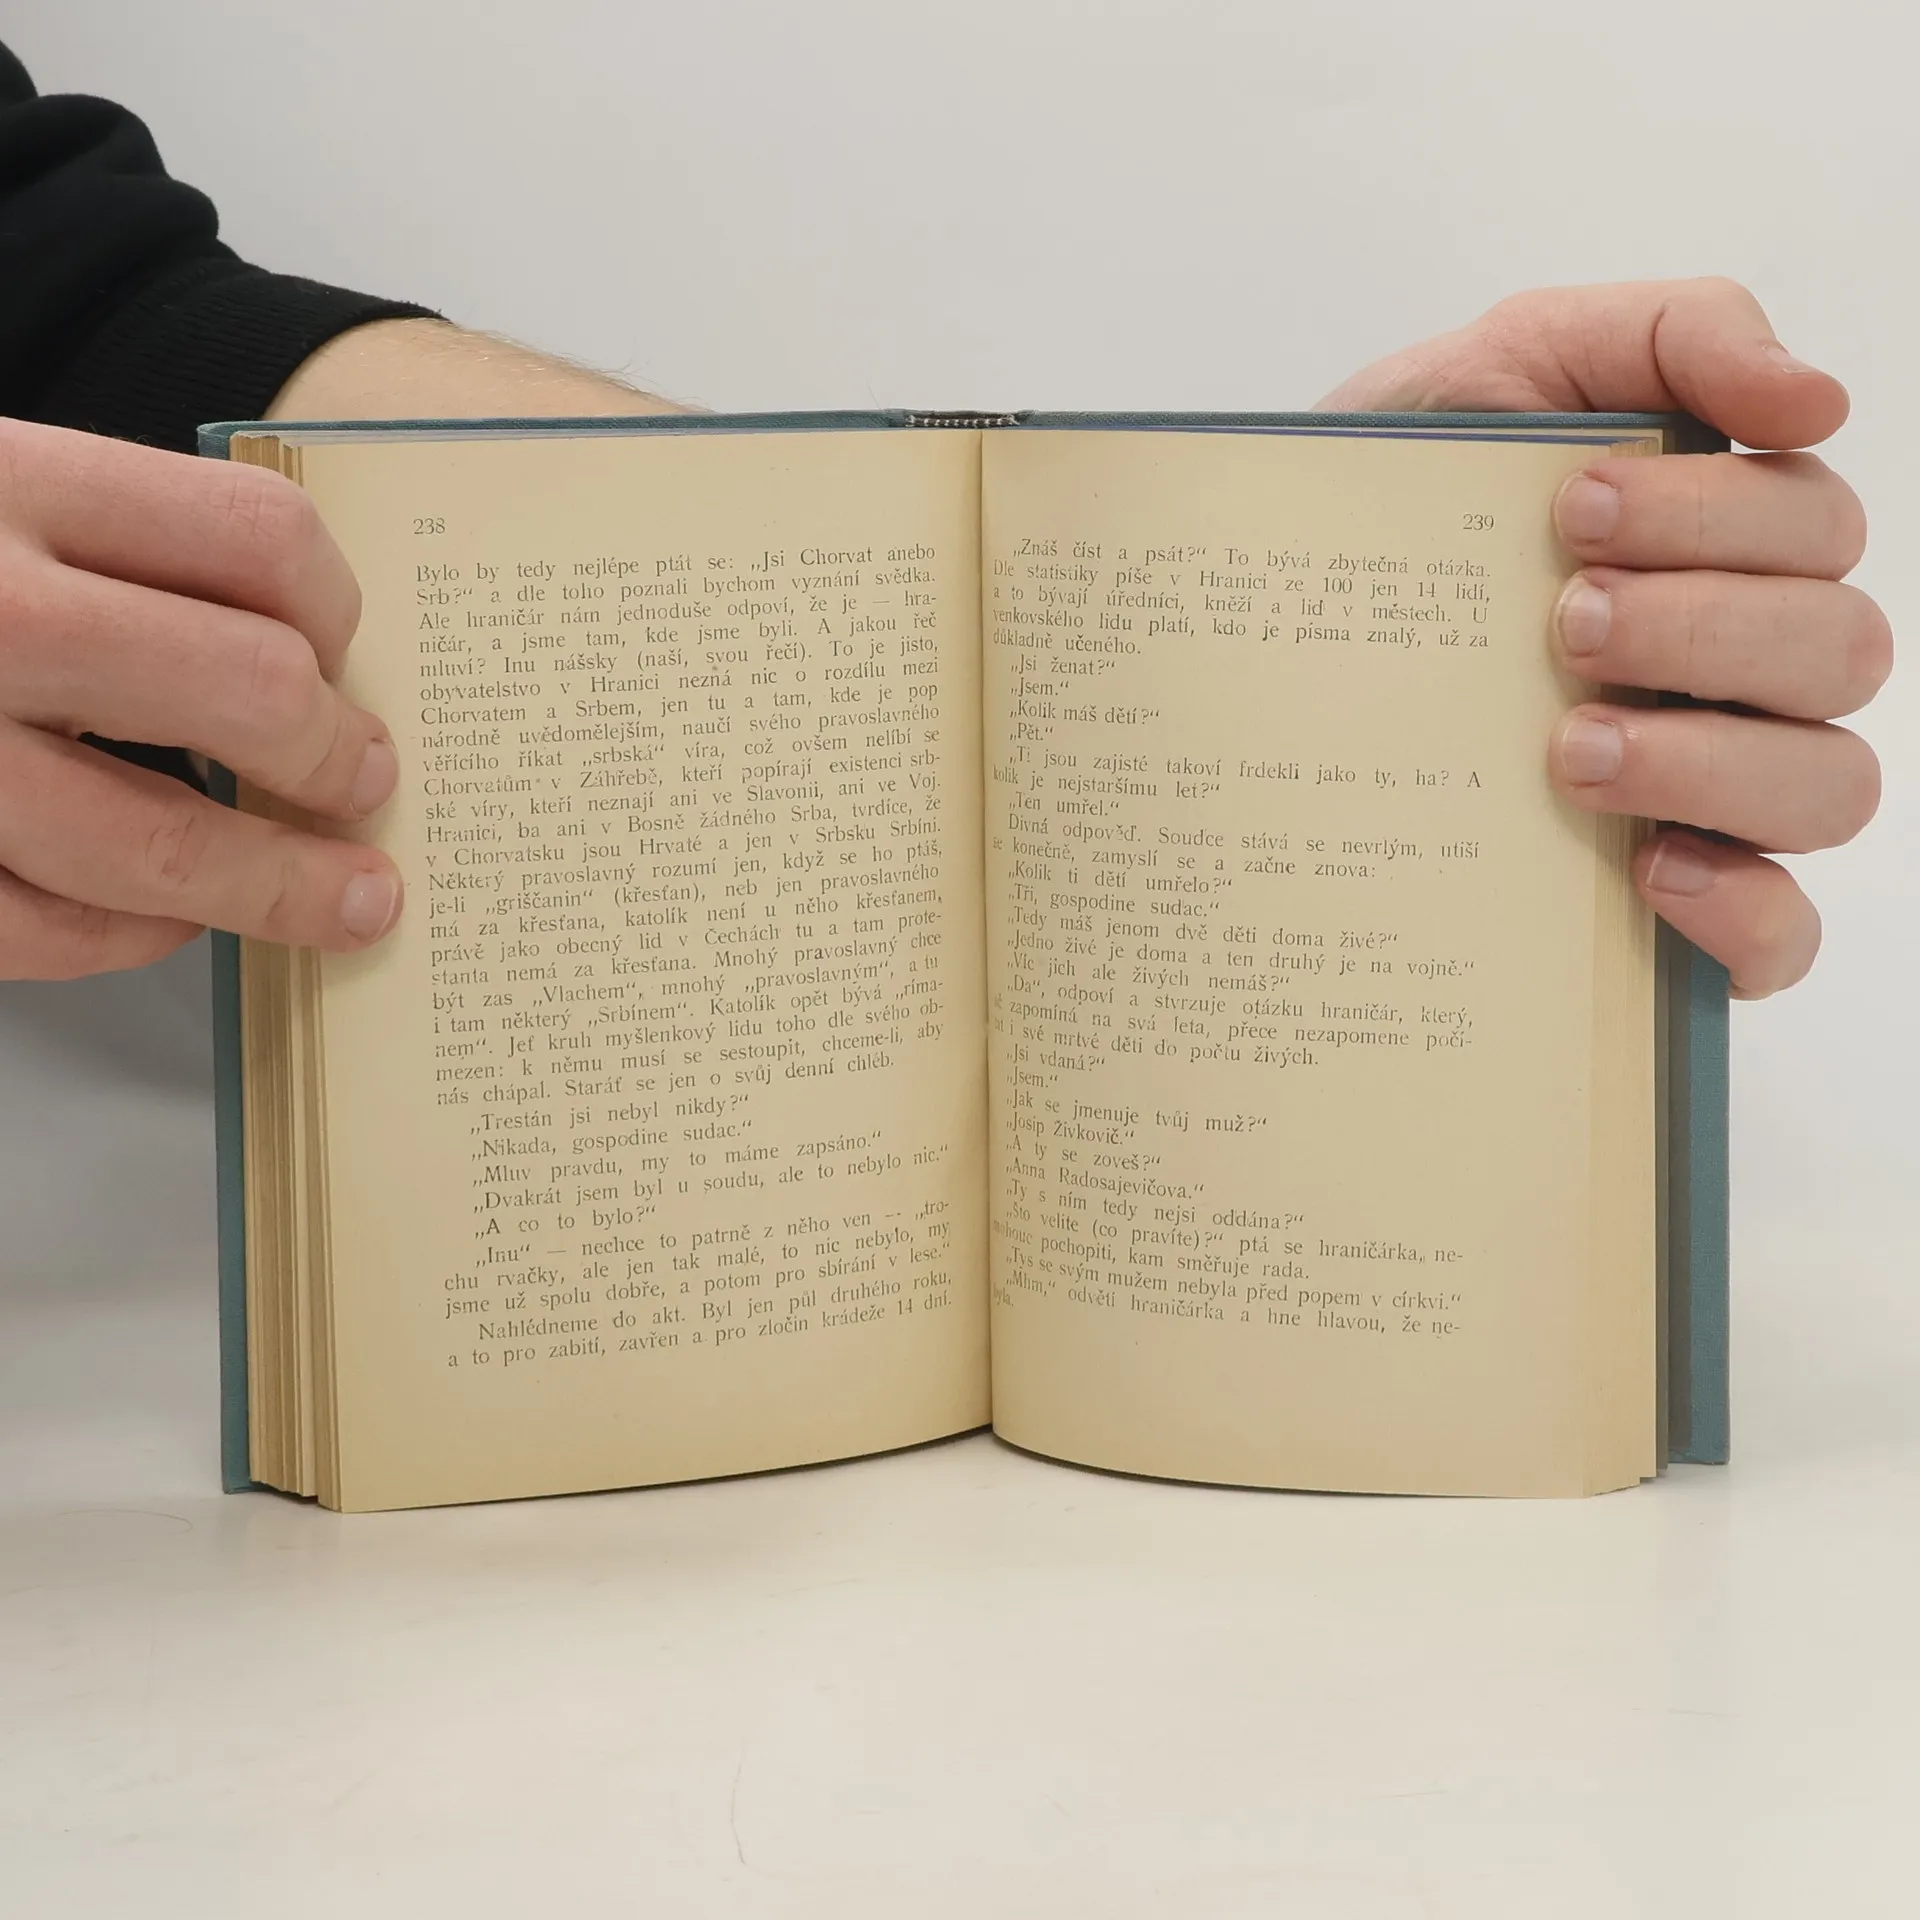 238
Bylo by tedy nejlépe ptát se: „Jsi Chorvat anebo
Srb?“ a dle toho poznali bychom vyznání svědka.
Ale hraničár nám jednoduše odpoví, že je — hra-
ničár, a jsme tam, kde jsme byli. A jakou řeč
mluví? Inu nášsky (naší, svou řečí). To je jisto,
obyvatelstvo v Hranici nezná nic o rozdílu mezi
Chorvatem a Srbem, jen tu a tam, kde je pop
národně uvědomělejším, naučí svého pravoslavného
věřícího říkat „srbská“ víra, což ovšem nelíbí se
Chorvatům v Záhřebě, kteří popírají existenci srb-
ské víry, kteří neznají ani ve Slavonii, ani ve Voj.
Hranici, ba ani v Bosně žádného Srba, tvrdíce, že
v Chorvatsku jsou Hrvaté a jen v Srbsku Srbíni.
Některý pravoslavný rozumí jen, když se ho ptáš,
je-li „griščanin“ (křesťan), neb jen pravoslavného
má za křesťana, katolík není u něho křesťanem,
právě jako obecný lid v Čechách tu a tam prote-
stanta nemá za křesťana. Mnohý pravoslavný chce
být zas „Vlachem“, mnohý „pravoslavným“, a tu
i tam některý „Srbínem“. Katolík opět bývá „ríma-
nem“. Jeť kruh myšlenkový lidu toho dle svého ob-
mezen: k němu musí se sestoupit, chceme-li, aby
nás chápal. Staráť se jen o svůj denní chléb.
„Trestán jsi nebyl nikdy?“
„Nikada, gospodine sudac.“
„Mluv pravdu, my to máme zapsáno.“
„Dvakrát jsem byl u soudu, ale to nebylo nic.“
„A co to bylo?“
„Inu“ — nechce to patrně z něho ven — „tro-
chu rvačky, ale jen tak malé, to nic nebylo, my
jsme už spolu dobře, a potom pro sbírání v lese.“
Nahlédneme do akt. Byl jen půl druhého roku,
a to pro zabití, zavřen a pro zločin krádeže 14 dní.
239
„Znáš číst a psát?“ To bývá zbytečná otázka.
Dle statistiky píše v Hranici ze 100 jen 14 lidí,
a to bývají úředníci, kněží a lid v městech. U
venkovského lidu platí, kdo je písma znalý, už za
důkladně učeného.
„Jsi ženat?“
„Jsem.“
„Kolik máš dětí?“
„Pět.“
„Ti jsou zajisté takoví frdekli jako ty, ha? A
kolik je nejstaršímu let?“
„Ten umřel.“
Divná odpověď. Soudce stává se nevrlým, utiší
se konečně, zamyslí se a začne znova:
„Kolik ti dětí umřelo?“
„Tři, gospodine sudac.“
„Tedy máš jenom dvě děti doma živé?“
„Jedno živé je doma a ten druhý je na vojně.“
„Víc jich ale živých nemáš?“
„Da“, odpoví a stvrzuje otázku hraničár, který,
ač zapomíná na svá leta, přece nezapomene počí-
tat i své mrtvé děti do počtu živých.
„Jsi vdaná?“
„Jsem.“
„Jak se jmenuje tvůj muž?“
„Josip Živkovič.“
„A ty se zoveš?“
„Anna Radosajevičova.“
„Ty s ním tedy nejsi oddána?“
„Što velite (co pravíte)?“ ptá se hraničárka, ne-
mohouc pochopiti, kam směřuje rada.
„Tys se svým mužem nebyla před popem v církvi.“
„Mhm,“ odvětí hraničárka a hne hlavou, že ne-
byla.